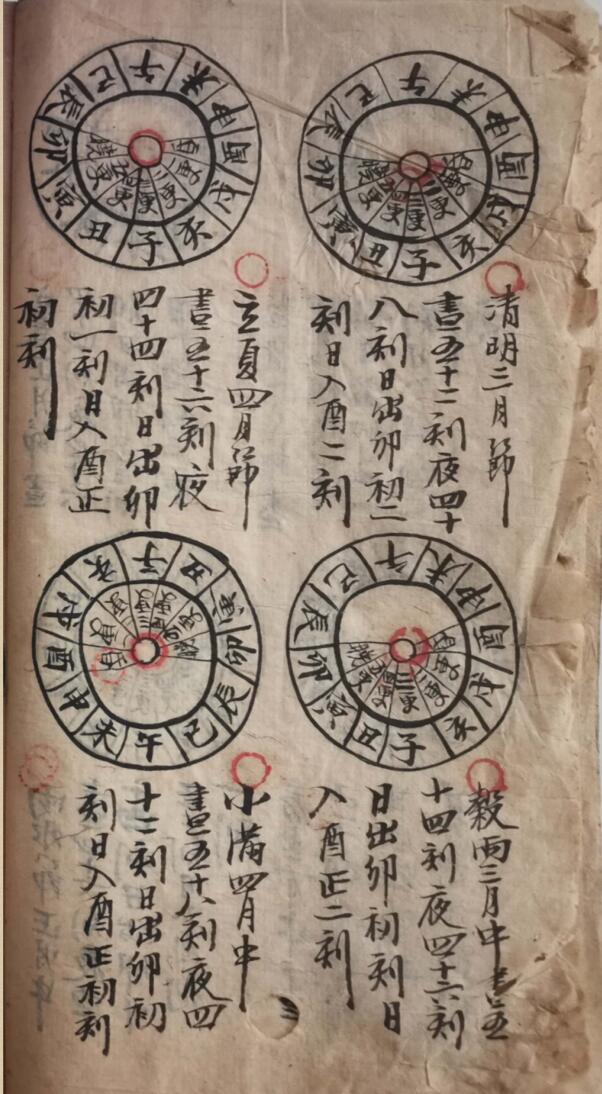 子丑寅卯辰巳午未申酉戌亥
二更
三更
五更
清明三月節
晝五十二刻夜四十
八刻日出卯初二
刻日入酉二刻
子丑寅卯辰巳午未申酉戌亥
二更
三更
五更
立夏四月節
晝五十六刻夜
四十四刻日出卯
初一刻日入酉正
初刻
子丑寅卯辰巳午未申酉戌亥
二更
三更
五更
穀雨三月中晝五
十四刻夜四十六刻
日出卯初刻日
入酉正二刻
子丑寅卯辰巳午未申酉戌亥
二更
三更
五更
小滿四月中
晝五十八刻夜四
十二刻日出卯初
刻日入酉正初刻